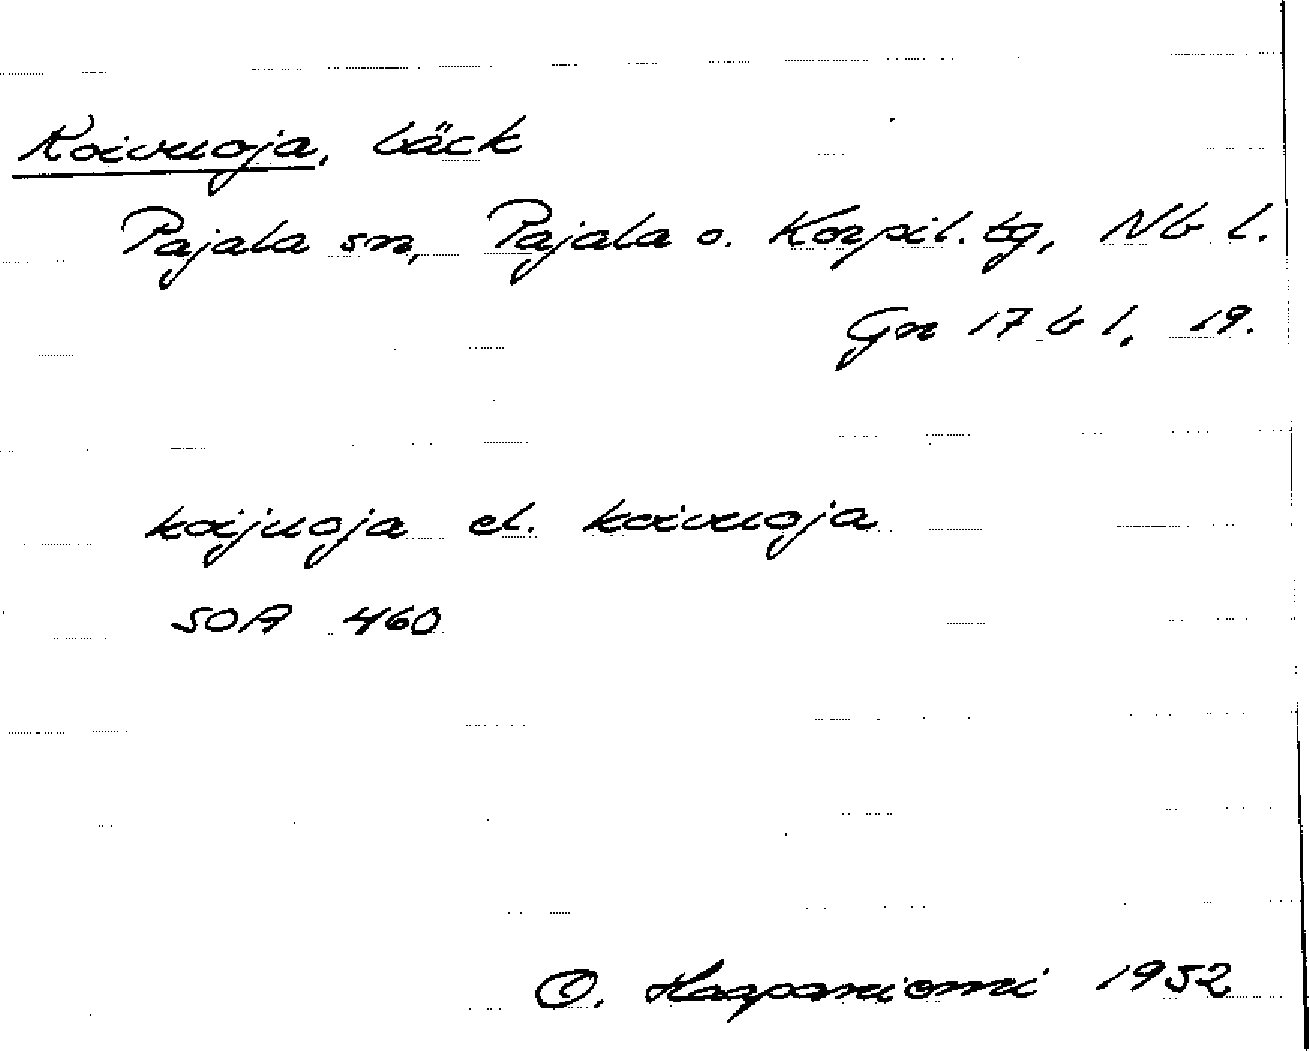 Koivuoja, bäck
Pajala sn, Pajala o. Korpil. tg, Nb l.
Gn 17 b 1, 19.
koijuoja el. koivuoja
SOA 460
O. Haapaniemi 1952